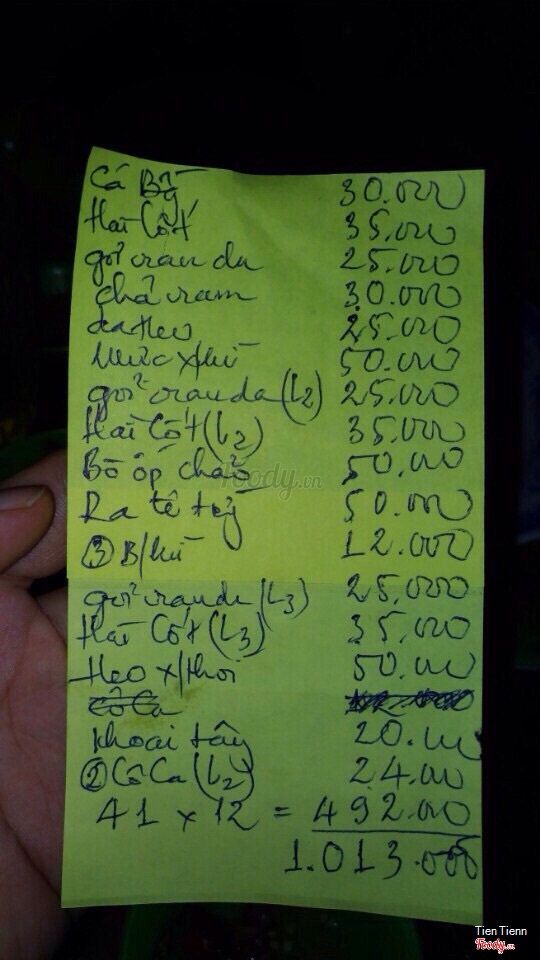 Cá Bỹ 30.000
Hài Cốt 35.000
gỏi rau da 25.000
chả ram 30.000
da heo 25.000
Mực x/hủ 50.000
gỏi rau da (L2) 25.000
Hài Cốt (L2) 35.000
Bò ốp chảo 50.000
Ra tê tẻy 50.000
③ B/hủ 12.000
gỏi rau da (L3) 25.000
Hài Cốt (L3) 35.000
Heo x/thơi 50.000
Cô Ca
khoai tây 20.000
② Cô Ca (L2) 24.000
41 x 12 = 492.000
1.013.000
Foody.vn
Tien Tienn
Foody.vn